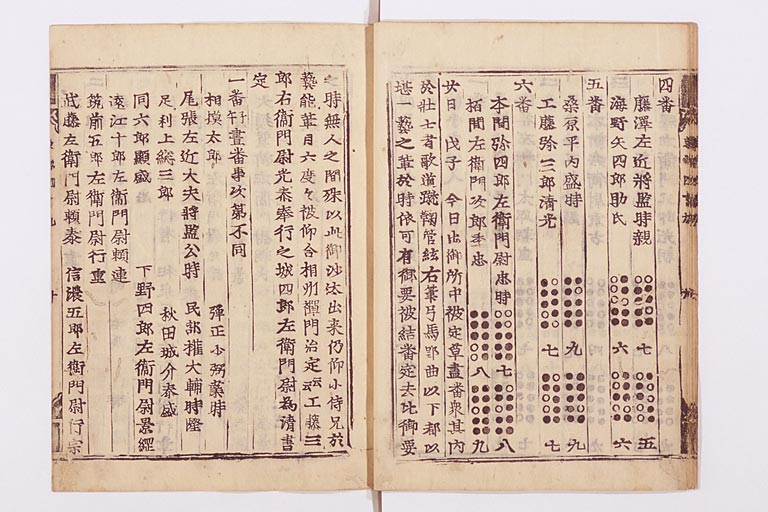 四番
藤澤左近將監時親 七 五
海野矢四郎助氏 六 六
五番
桑原平内盛時 九 九
工藤弥三郎清光 七 七
六番
本間弥四郎左衛門尉忠時 七 八
栢間左衛門次郎季忠 八 九
廿日 戊子 今日出御所中被定草畫番衆其内
於壯士者歌道蹴鞠管絃右筆弓馬郢曲以下都以
堪一藝之輩於時依可有御要被結番定去比御要
之時無人之間殊以此御沙汰出来仍仰小侍兄於
藝能輩目六度々被仰合相州禪門治定云云工藤三
郎右衛門尉光泰奉行之城四郎左衛門尉為清書
定
一番 子午 晝番事次第不同
相摸太郎 弾正少弼業時
尾張左近大夫將監公時 民部権大輔時隆
足利上総三郎 秋田城介泰盛
同六郎顕盛 下野四郎左衛門尉景經
遠江十郎左衛門尉頼連
筑前五郎左衛門尉行重
武藤左衛門尉頼泰 信濃五郎左衛門尉行宗